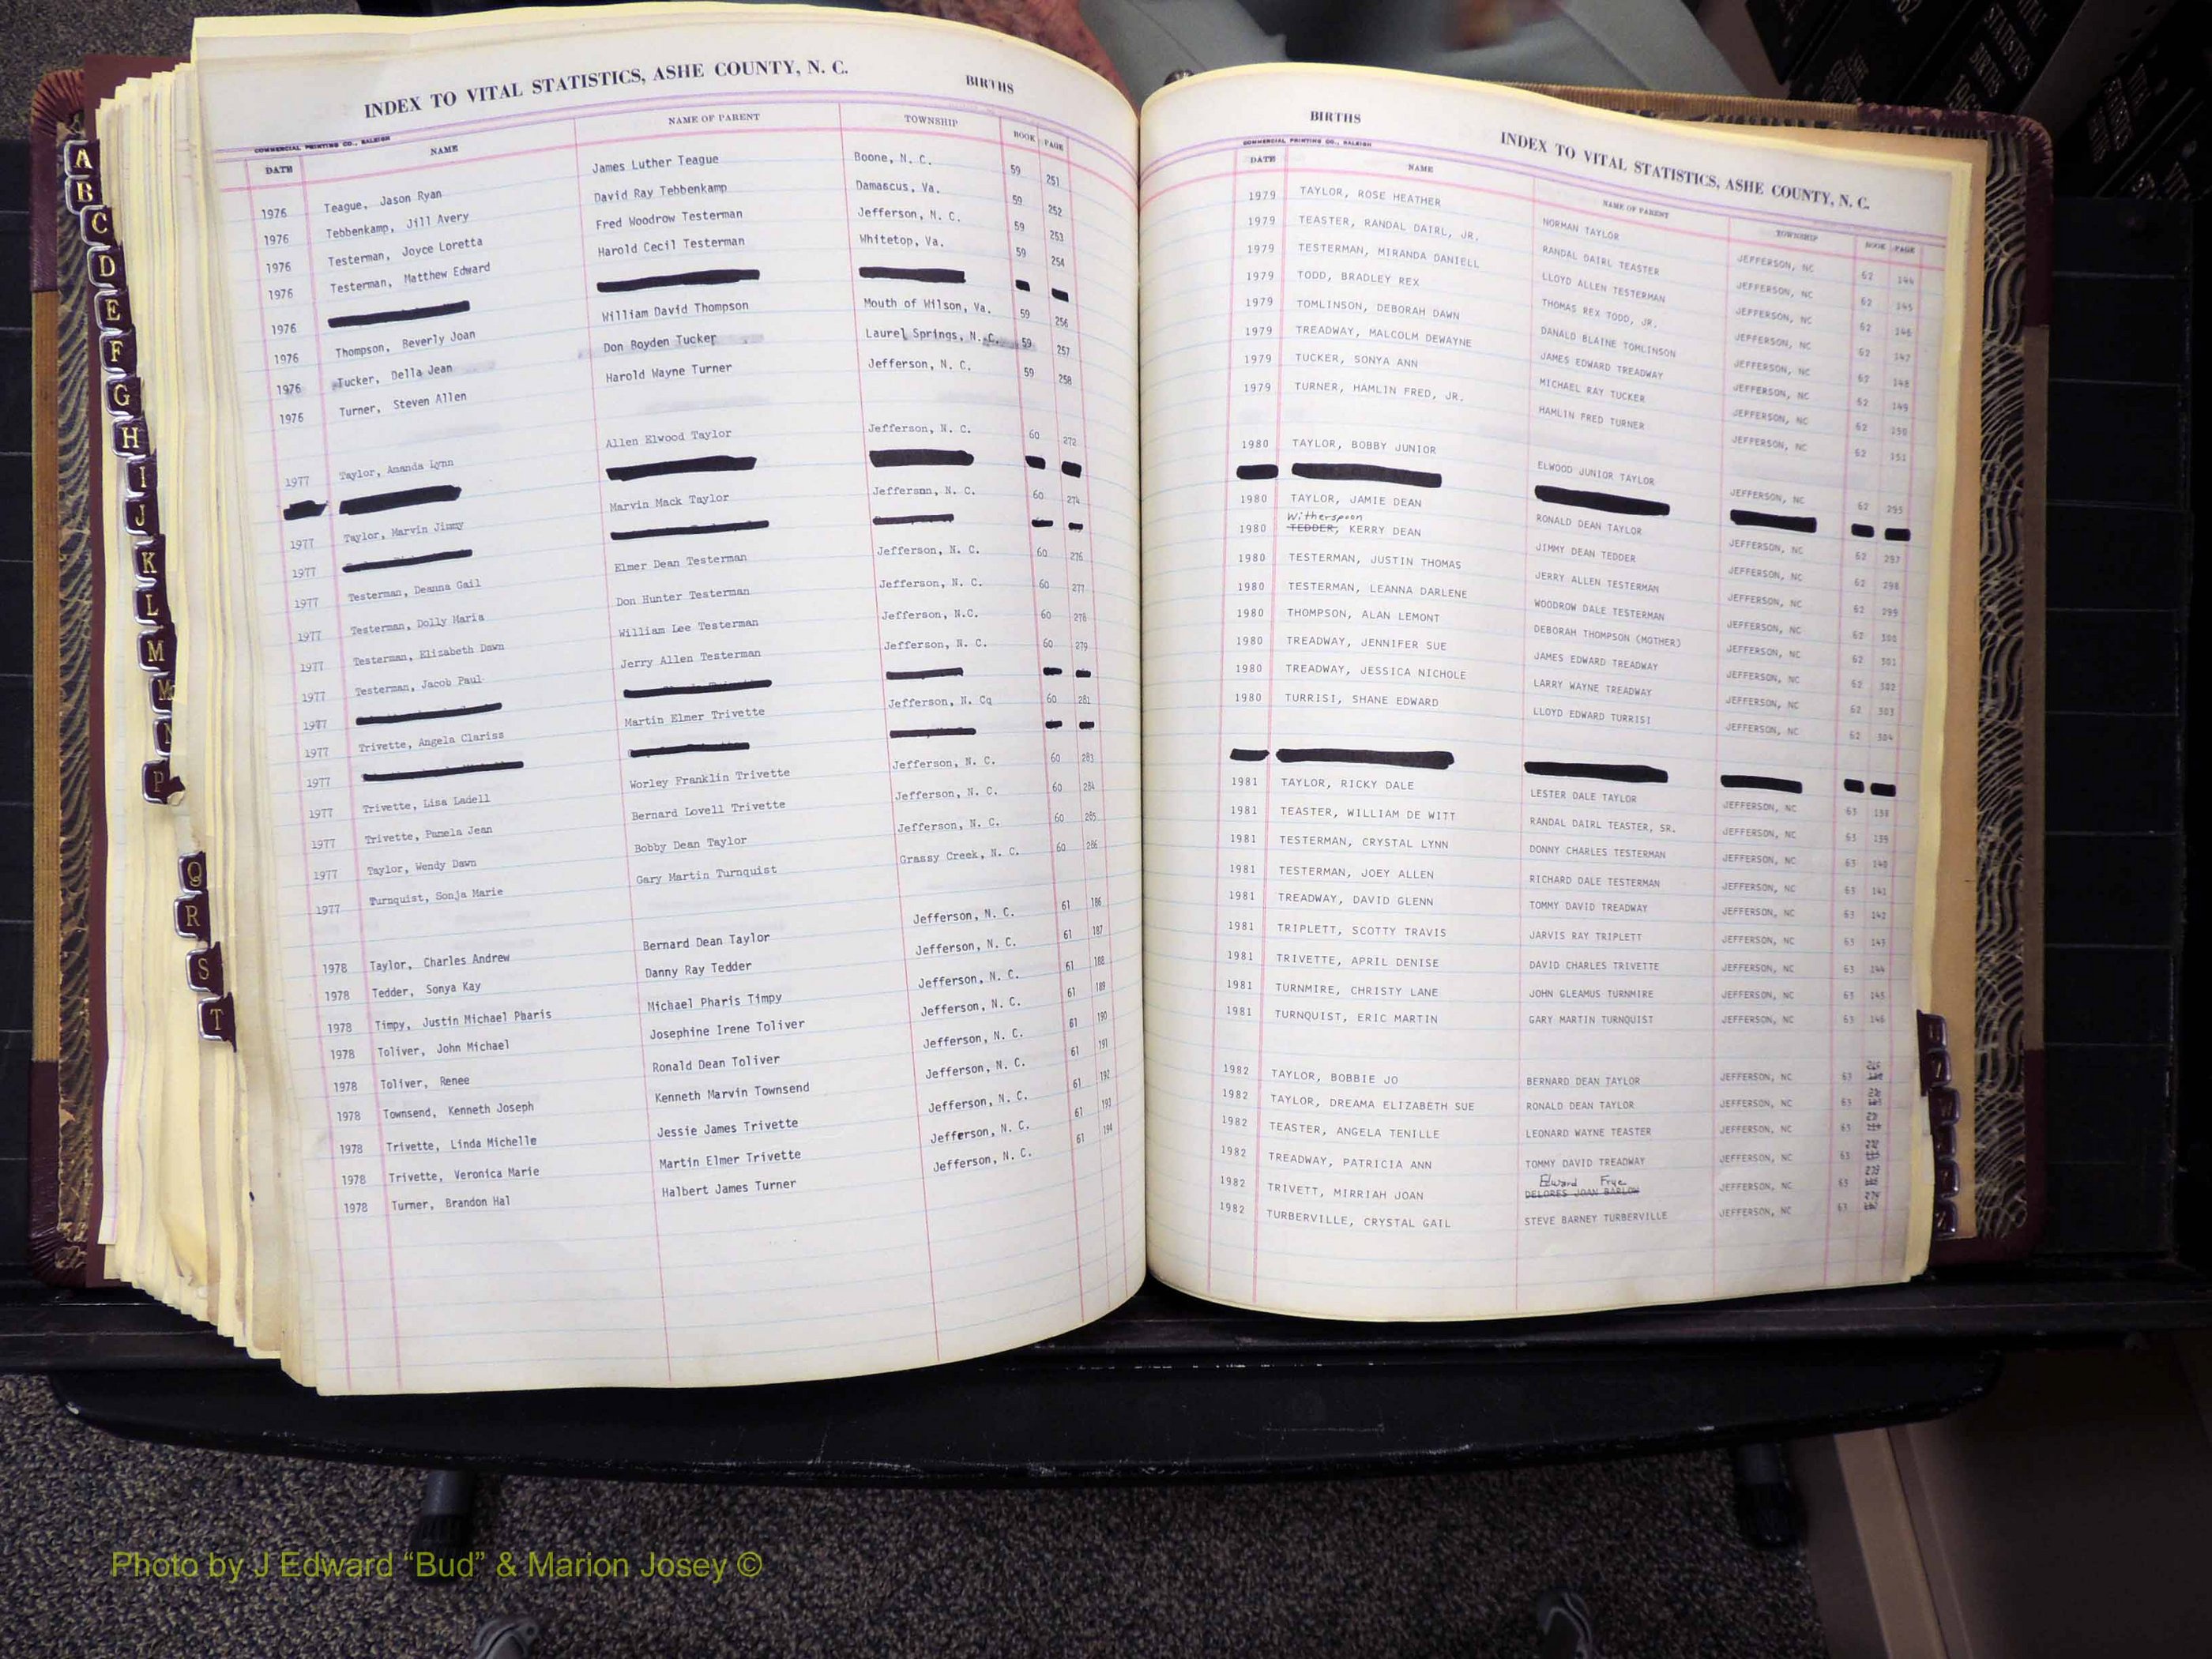 INDEX TO VITAL STATISTICS, ASHE COUNTY, N. C.
BIRTHS
COMMERCIAL PRINTING CO., RALEIGH
DATE NAME NAME OF PARENT TOWNSHIP BOOK PAGE
1976 Teague, Jason Ryan James Luther Teague Boone, N. C. 59 251
1976 Tebbenkamp, Jill Avery David Ray Tebbenkamp Damascus, Va. 59 252
1976 Testerman, Joyce Loretta Fred Woodrow Testerman Jefferson, N. C. 59 253
1976 Testerman, Matthew Edward Harold Cecil Testerman Whitetop, Va. 59 254
1976
1976 Thompson, Beverly Joan William David Thompson Mouth of Wilson, Va. 59 256
1976 Tucker, Della Jean Don Boyden Tucker Laurel Springs, N. C. 59 257
1976 Turner, Steven Allen Harold Wayne Turner Jefferson, N. C. 59 258
1977 Taylor, Amanda Lynn Allen Elwood Taylor Jefferson, N. C. 60 272
1977 Taylor, Marvin Jimmy Marvin Mack Taylor Jefferson, N. C. 60 274
1977
1977 Testerman, Deanna Gail Elmer Dean Testerman Jefferson, N. C. 60 276
1977 Testerman, Dolly Maria Don Hunter Testerman Jefferson, N. C. 60 277
1977 Testerman, Elizabeth Dawn William Lee Testerman Jefferson, N.C. 60 278
1977 Testerman, Jacob Paul Jerry Allen Testerman Jefferson, N. C. 60 279
1977
1977 Trivette, Angela Clariss Martin Elmer Trivette Jefferson, N. Cq 60 281
1977
1977 Trivette, Lisa Ladell Worley Franklin Trivette Jefferson, N. C. 60 283
1977 Trivette, Pamela Jean Bernard Lovell Trivette Jefferson, N. C. 60 284
1977 Taylor, Wendy Dawn Bobby Dean Taylor Jefferson, N. C. 60 285
1977 Turnquist, Sonja Marie Gary Martin Turnquist Grassy Creek, N. C. 60 286
1978 Taylor, Charles Andrew Bernard Dean Taylor Jefferson, N. C. 61 186
1978 Tedder, Sonya Kay Danny Ray Tedder Jefferson, N. C. 61 187
1978 Timpy, Justin Michael Pharis Michael Pharis Timpy Jefferson, N. C. 61 188
1978 Toliver, John Michael Josephine Irene Toliver Jefferson, N. C. 61 189
1978 Toliver, Renee Ronald Dean Toliver Jefferson, N. C. 61 190
1978 Townsend, Kenneth Joseph Kenneth Marvin Townsend Jefferson, N. C. 61 191
1978 Trivette, Linda Michelle Jessie James Trivette Jefferson, N. C. 61 192
1978 Trivette, Veronica Marie Martin Elmer Trivette Jefferson, N. C. 61 193
1978 Turner, Brandon Hal Halbert James Turner Jefferson, N. C. 61 194
BIRTHS
INDEX TO VITAL STATISTICS, ASHE COUNTY, N. C.
COMMERCIAL PRINTING CO., RALEIGH
DATE NAME NAME OF PARENT TOWNSHIP BOOK PAGE
1979 TAYLOR, ROSE HEATHER NORMAN TAYLOR JEFFERSON, NC 62 144
1979 TEASTER, RANDAL DAIRL, JR. RANDAL DAIRL TEASTER JEFFERSON, NC 62 145
1979 TESTERMAN, MIRANDA DANIELL LLOYD ALLEN TESTERMAN JEFFERSON, NC 62 146
1979 TODD, BRADLEY REX THOMAS REX TODD, JR. JEFFERSON, NC 62 147
1979 TOMLINSON, DEBORAH DAWN DANALD BLAINE TOMLINSON JEFFERSON, NC 62 148
1979 TREADWAY, MALCOLM DEWAYNE JAMES EDWARD TREADWAY JEFFERSON, NC 62 149
1979 TUCKER, SONYA ANN MICHAEL RAY TUCKER JEFFERSON, NC 62 150
1979 TURNER, HAMLIN FRED, JR. HAMLIN FRED TURNER JEFFERSON, NC 62 151
1980 TAYLOR, BOBBY JUNIOR ELWOOD JUNIOR TAYLOR JEFFERSON, NC 62 295
1980 TAYLOR, JAMIE DEAN RONALD DEAN TAYLOR JEFFERSON, NC 62 297
Witherspoon
1980 TEDDER, KERRY DEAN JIMMY DEAN TEDDER JEFFERSON, NC 62 298
1980 TESTERMAN, JUSTIN THOMAS JERRY ALLEN TESTERMAN JEFFERSON, NC 62 299
1980 TESTERMAN, LEANNA DARLENE WOODROW DALE TESTERMAN JEFFERSON, NC 62 300
1980 THOMPSON, ALAN LEMONT DEBORAH THOMPSON (MOTHER) JEFFERSON, NC 62 301
1980 TREADWAY, JENNIFER SUE JAMES EDWARD TREADWAY JEFFERSON, NC 62 302
1980 TREADWAY, JESSICA NICHOLE LARRY WAYNE TREADWAY JEFFERSON, NC 62 303
1980 TURRISI, SHANE EDWARD LLOYD EDWARD TURRISI JEFFERSON, NC 62 304
1981 TAYLOR, RICKY DALE LESTER DALE TAYLOR JEFFERSON, NC 63 138
1981 TEASTER, WILLIAM DE WITT RANDAL DAIRL TEASTER, SR. JEFFERSON, NC 63 139
1981 TESTERMAN, CRYSTAL LYNN DONNY CHARLES TESTERMAN JEFFERSON, NC 63 140
1981 TESTERMAN, JOEY ALLEN RICHARD DALE TESTERMAN JEFFERSON, NC 63 141
1981 TREADWAY, DAVID GLENN TOMMY DAVID TREADWAY JEFFERSON, NC 63 142
1981 TRIPLETT, SCOTTY TRAVIS JARVIS RAY TRIPLETT JEFFERSON, NC 63 143
1981 TRIVETTE, APRIL DENISE DAVID CHARLES TRIVETTE JEFFERSON, NC 63 144
1981 TURNMIRE, CHRISTY LANE JOHN GLEAMUS TURNMIRE JEFFERSON, NC 63 145
1981 TURNQUIST, ERIC MARTIN GARY MARTIN TURNQUIST JEFFERSON, NC 63 146
1982 TAYLOR, BOBBIE JO BERNARD DEAN TAYLOR JEFFERSON, NC 63
1982 TAYLOR, DREAMA ELIZABETH SUE RONALD DEAN TAYLOR JEFFERSON, NC 63
1982 TEASTER, ANGELA TENILLE LEONARD WAYNE TEASTER JEFFERSON, NC 63
1982 TREADWAY, PATRICIA ANN TOMMY DAVID TREADWAY JEFFERSON, NC 63
Edward Frye
1982 TRIVETT, MIRRIAH JOAN DELORES JOAN BARLOW JEFFERSON, NC 63
1982 TURBERVILLE, CRYSTAL GAIL STEVE BARNEY TURBERVILLE JEFFERSON, NC 63
A
B
C
D
E
F
G
H
I
J
K
L
M
M
N
P
Q
R
S
T
W
VITAL STATISTICS
Photo by J Edward “Bud” & Marion Josey ©